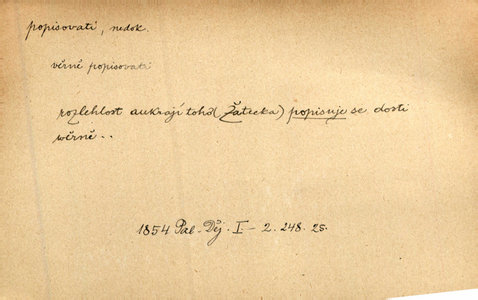 popisovati, nedok.
věrně popisovati
rozlehlost aukrají toho (Žatecka) popisuje se dosti
wěrně..
1854 Pal. Děj. I-2. 248. 25.